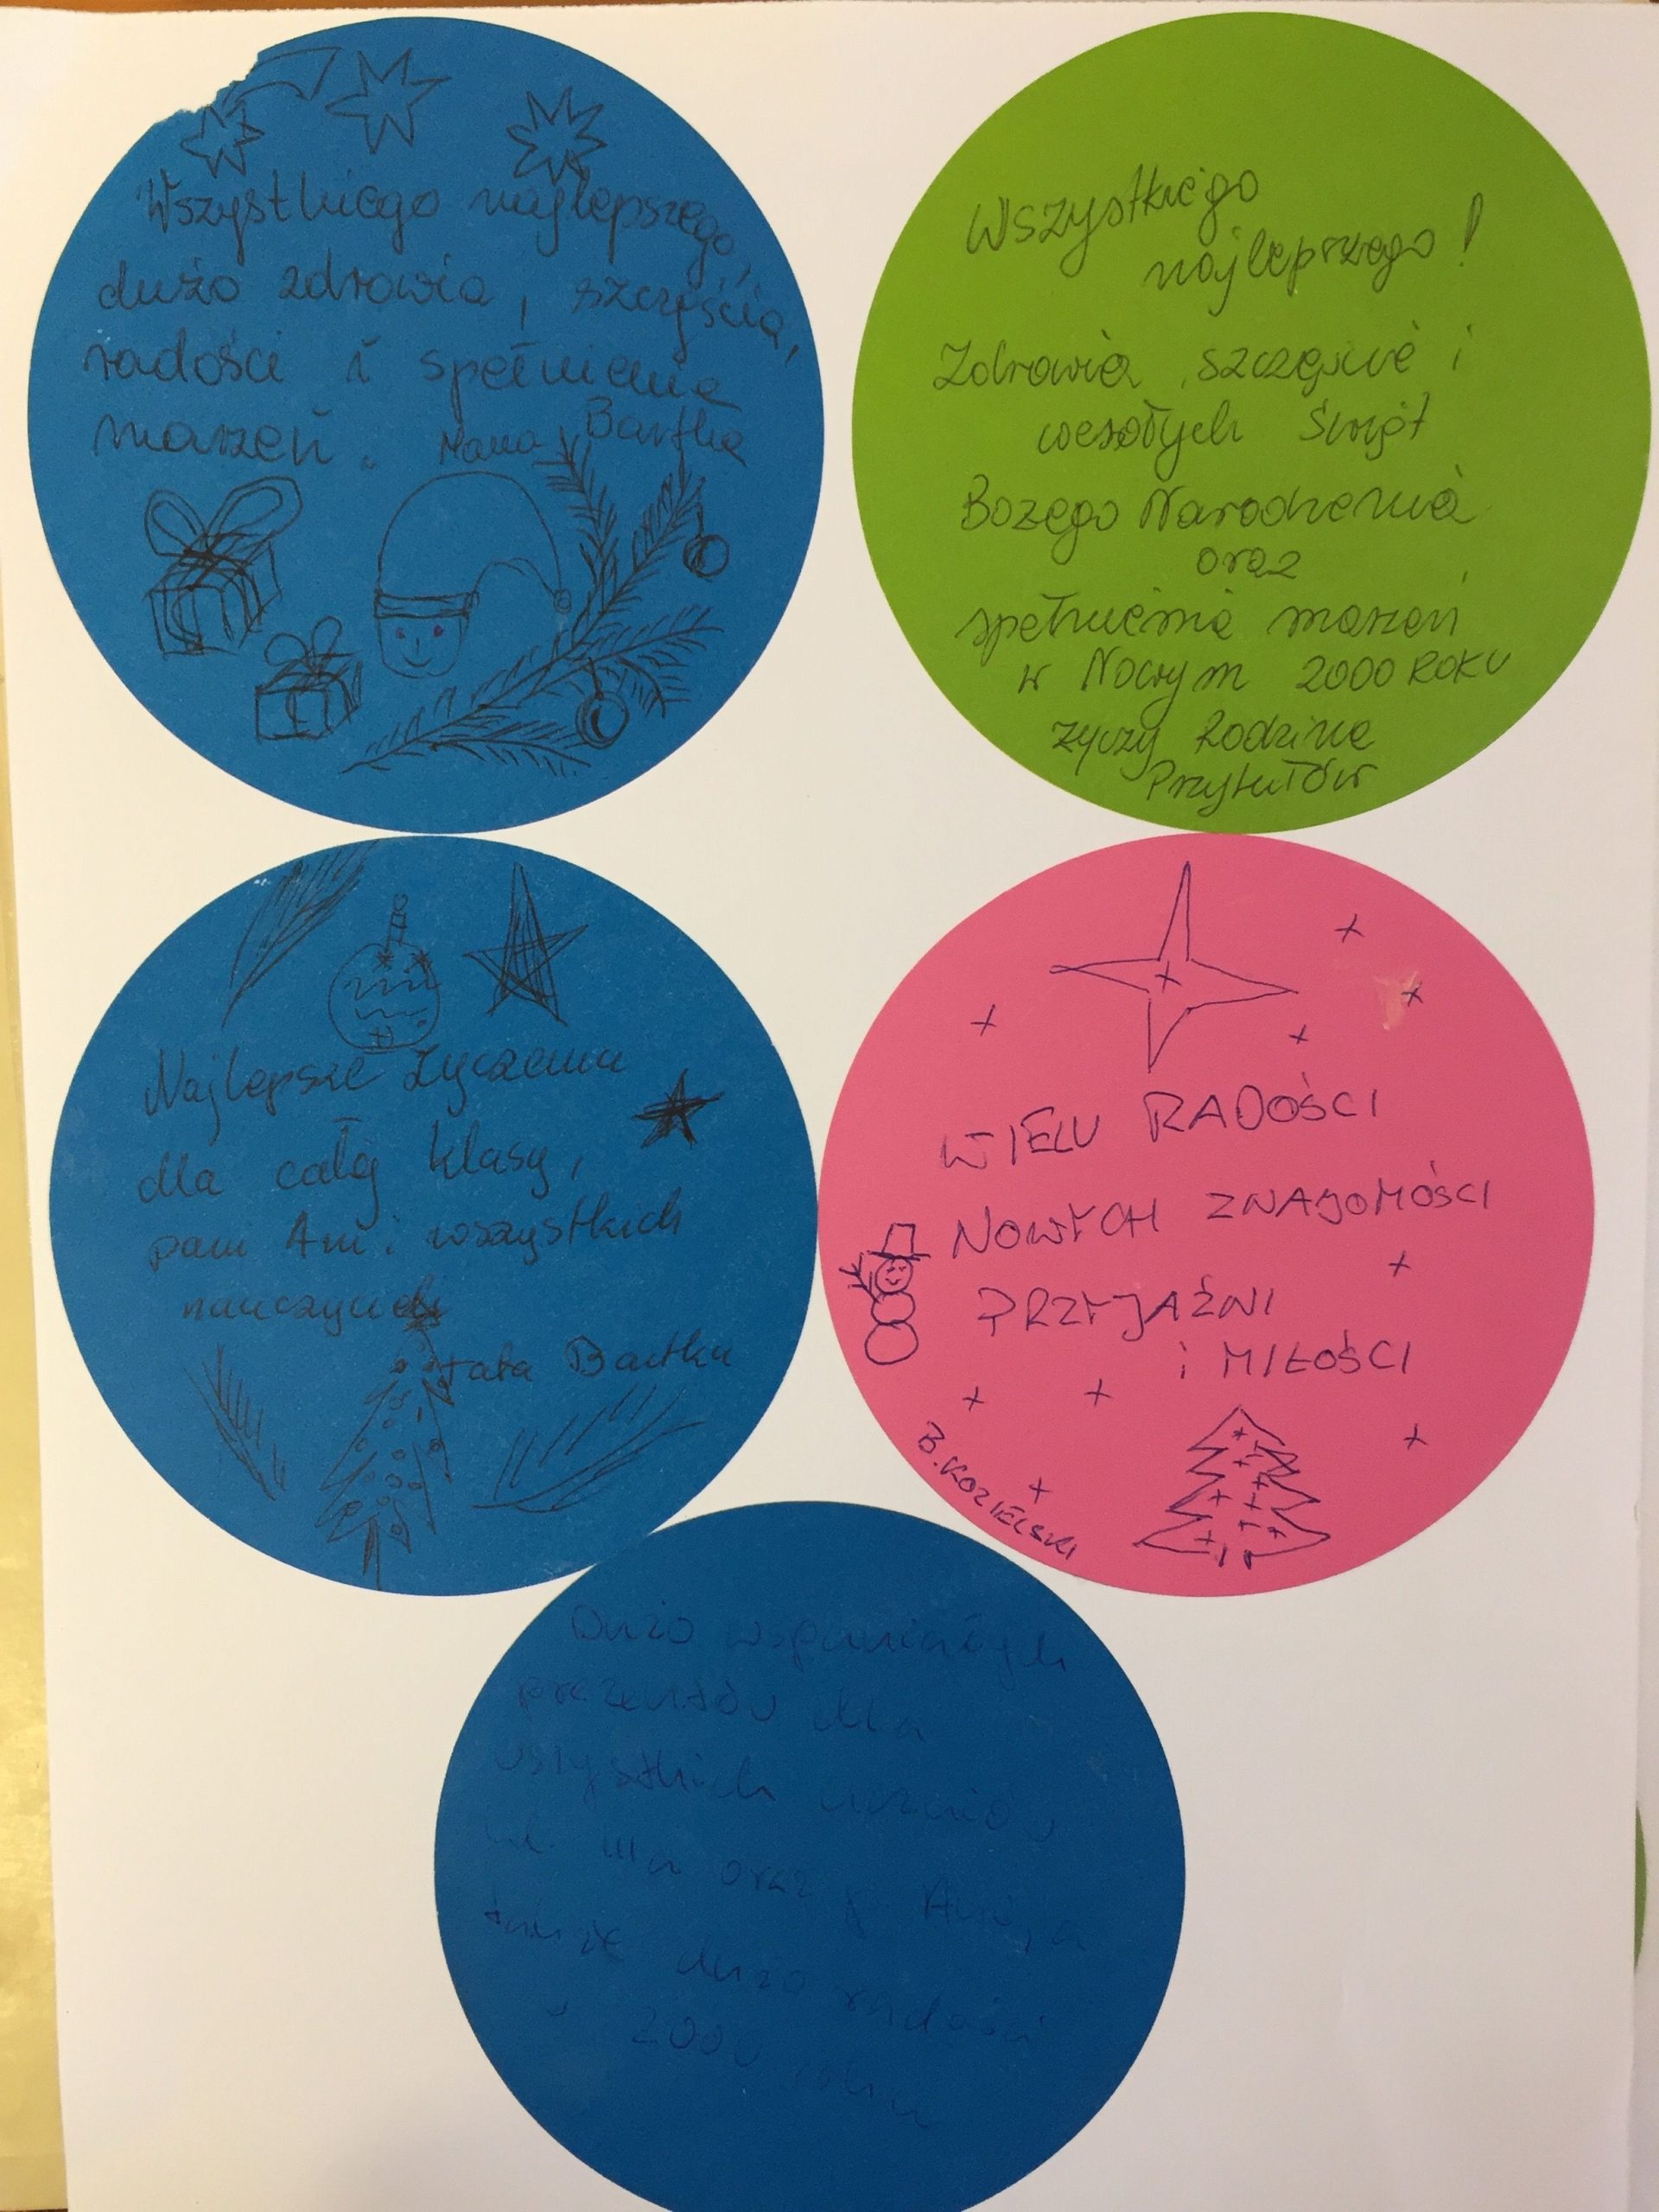 Wszystkiego najlepszego,
dużo zdrowia, szczęścia,
radości i spełnienia
marzeń. Mama Bartka
Wszystkiego
najleprzego!
Zdrowia, szczęśive i
wesołych Świąt
Bożego Narodzenia
oraz
spełnienia marzeń
w Nowym 2000 ROKU
życzy Rodzina
Przytułów
Najlepsze życzenia
dla całej klasy,
pani Ani i wszystkich
nauczycieli
tata Bartka
WIELU RADOŚCI
NOWYCH ZNAJOMOŚCI
PRZYJAŹNI
i MIŁOŚCI
B. KOZIELSKI
Dużo wspaniałych
prezentów dla
wszystkich uczniów
kl. IIIa oraz p. Ani, a
także dużo radości
w 2000 roku